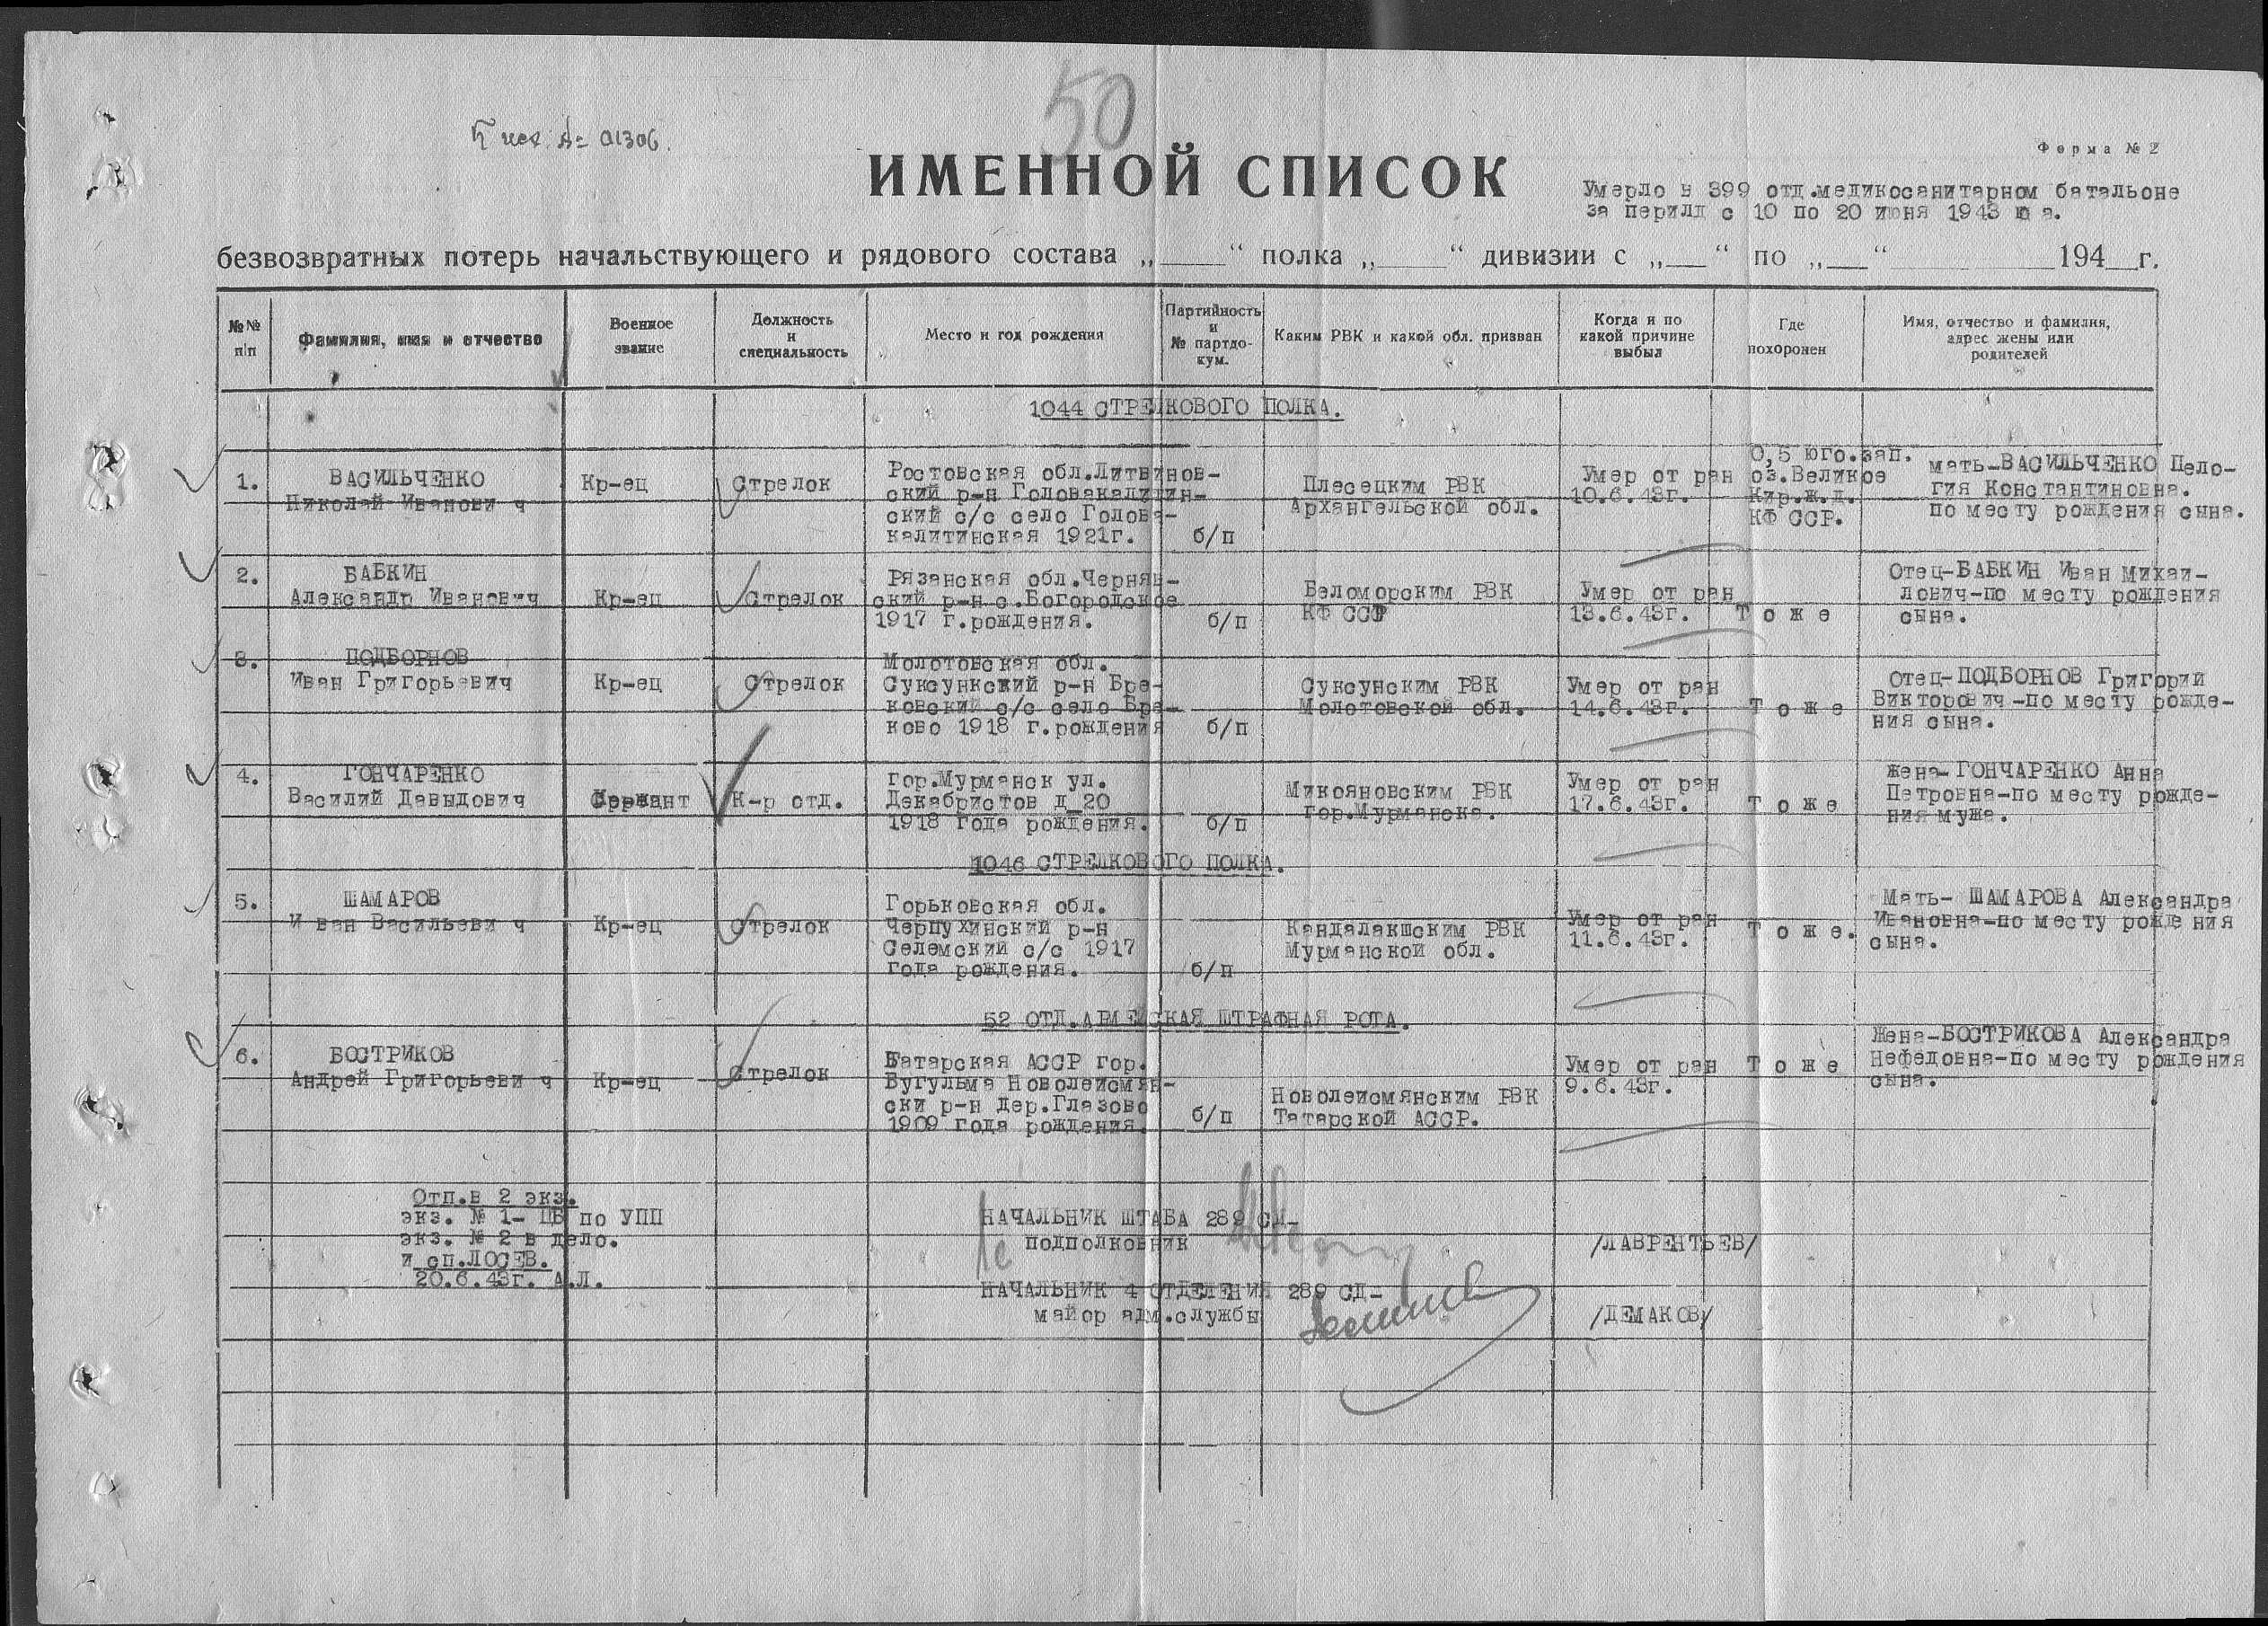 50
К исх. № 01306.
Форма № 2
ИМЕННОЙ СПИСОК
Умерло в 399 отд.медикосанитарном батальоне
за перилд с 10 по 20 июня 1943
безвозвратных потерь начальствующего и рядового состава „____“ полка „____“ дивизии с „__“ по „__“ ________ 194__г.
№№ п/п
Фамилия, имя и отчество
Военное звание
Должность и специальность
Место и год рождения
Партийность и № партдокум.
Каким РВК и какой обл. призван
Когда и по какой причине выбыл
Где похоронен
Имя, отчество и фамилия, адрес жены или родителей
1044 СТРЕЛКОВОГО ПОЛКА.
1.
ВАСИЛЬЧЕНКО
Николай Иванови ч
Кр-ец
Стрелок
Ростовская обл.Литвинов-
ский р-н Головакалитин-
ский с/с село Голова-
калитинская 1921г.
б/п
Плесецким РВК
Архангельской обл.
Умер от ран
10.6.43г.
0,5 юго.зап.
оз.Великое
Кир.ж.д.
КФ ССР.
мать-ВАСИЛЬЧЕНКО Пело-
гия Константиновна.
по месту рождения сына.
2.
БАБКИН
Александр Иванович
Кр-ец
Стрелок
Рязанская обл.Чернян-
ский р-н с.Богородское
1917 г.рождения.
б/п
Беломорским РВК
КФ ССР
Умер от ран
13.6.43г.
Т о ж е
Отец-БАБКИН Иван Михаи-
лович-по месту рождения
сына.
3.
ПОДБОРНОВ
Иван Григорьевич
Кр-ец
Стрелок
Молотовская обл.
Суксункский р-н Бра-
ковский с/с село Бра-
ково 1918 г.рождения
б/п
Суксунским РВК
Молотовской обл.
Умер от ран
14.6.43г.
Т о ж е
Отец-ПОДБОРНОВ Григорий
Викторович-по месту рожде-
ния сына.
4.
ГОНЧАРЕНКО
Василий Давыдович
Сержант
К-р отд.
гор.Мурманск ул.
Декабристов д_20
1918 года рождения.
б/п
Микояновским РВК
гор.Мурманска.
Умер от ран
17.6.43г.
Т о ж е
жена-ГОНЧАРЕНКО Анна
Петровна-по месту рожде-
ния мужа.
1046 СТРЕЛКОВОГО ПОЛКА.
5.
ШАМАРОВ
И ван Васильеви ч
Кр-ец
Стрелок
Горьковская обл.
Черпухинский р-н
Селемский с/с 1917
года рождения.
б/п
Кандалакшским РВК
Мурманской обл.
Умер от ран
11.6.43г.
Т о ж е.
Мать- ШАМАРОВА Александра
Ивановна-по месту рожде ния
сына.
52 ОТД.АРМЕЙСКАЯ ШТРАФНАЯ РОТА.
6.
БОСТРИКОВ
Андрей Григорьеви ч
Кр-ец
Стрелок
Татарская АССР гор.
Бугульма Новолеисмян-
ски р-н дер.Глазово
1909 года рождения.
б/п
Новолеисмянским РВК
Татарской АССР.
Умер от ран
9.6.43г.
Т о ж е
Жена-БОСТРИКОВА Александра
Нефедовна-по месту рождения
сына.
Отп.в 2 экз.
экз. № 1- ЦБ по УПП
экз. № 2 в дело.
и сп.ЛОСЕВ.
20.6.43г. А.Л.
НАЧАЛЬНИК ШТАБА 289 СД-
подполковник
/ЛАВРЕНТЬЕВ/
НАЧАЛЬНИК 4 ОТДЕЛЕНИЯ 289 СД-
майор адм.службы
/ДЕМАКОВ/